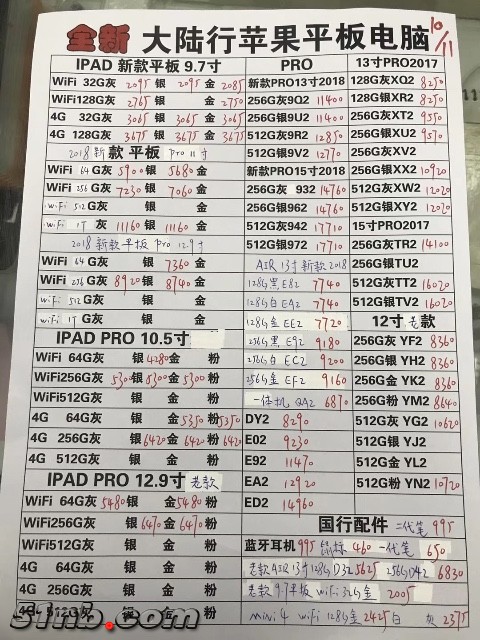 全新 大陆行苹果平板电脑 10/11
IPAD 新款平板 9.7寸
WiFi 32G灰 2095 银 2095 金 2085
WiFi128G灰 2765 银 金 2750
4G 32G灰 3065 银 3065 金 3065
4G 128G灰 3675 银 3675 金 3675
2018新款 平板 Pro 11寸
WiFi 64G灰 5900 银 5680 金
WiFi 256G灰 7230 银 7060 金
WiFi 512G灰 银 金
WiFi 1T G灰 11160 银 11160 金
2018新款平板 Pro 12.9寸
WiFi 64G灰 银 7360 金
WiFi 256G灰 8920 银 8740 金
WiFi 512G灰 银 金
WiFi 1T G灰 银 金
IPAD PRO 10.5寸
WiFi 64G灰 银 4280 金 粉
WiFi256G灰 5300 银 5300 金 5300 粉
WiFi512G灰 银 金 粉
4G 64G灰 银 金 5350 粉 5350
4G 256G灰 银 6420 金 6420 粉 6420
4G 512G灰 银 金 粉
IPAD PRO 12.9寸 老款
WiFi 64G灰 5480 银 金 5480 粉
WiFi256G灰 银 6470 金 6470 粉
WiFi512G灰 银 金 粉
4G 64G灰 银 金 粉
4G 256G灰 银 金 粉
银 金 粉
PRO
新款PRO13寸2018
256G灰9Q2 11400
256G银9U2 11400
512G灰9R2 12850
512G银9V2 12770
新款PRO15寸2018
256G灰 932 14760
256G银962 14760
512G灰942 17710
512G银972 17710
AIR 13寸 新款2018
128G黑 E82 7740
128G白 EA2 7740
128G金 EE2 7720
256G黑 E92 9180
256G白 EC2 9200
256G金 EF2 9160
一体机 QA2 6870
DY2 8290
E02 9230
E92 11470
EA2 12920
ED2 14960
13寸PRO2017
128G灰XQ2 8250
128G银XR2 8250
256G灰XT2 9550
256G银XU2 9550
256G灰XV2
256G银XX2 10920
512G灰XW2 12020
512G银XY2 12020
15寸PRO2017
256G灰TR2 14100
256G银TU2
512G灰TT2 16020
512G银TV2 16020
12寸 老款
256G灰 YF2 8360
256G银 YH2 8360
256G金 YK2 8360
256G粉 YM2 8640
512G灰 YG2 10620
512G银 YJ2
512G金 YL2
512G粉 YN2 10720
国行配件 二代笔 995
蓝牙耳机 995 鼠标 460 一代笔 650
老款AIR 13寸128G D32 5625 256G D42 6830
老款 9.7平板 WiFi 32G金 2005
mini 4 WiFi 128G金 2425 白 灰 2375